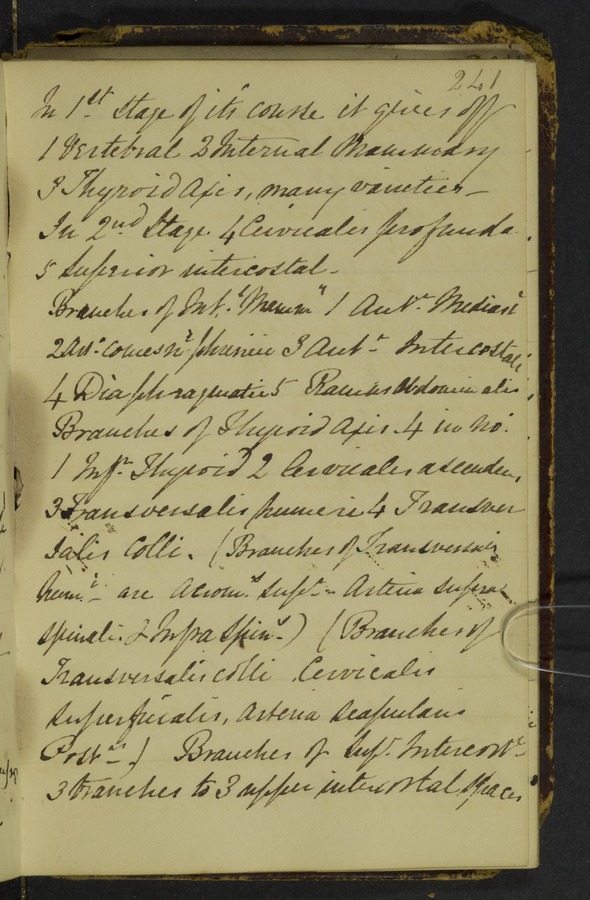 241
In 1st Stage of it's course it gives off
1 Vertebral 2 Internal Mammary
3 Thyroid Axis, many varieties –
In 2nd Stage 4 Cervicalis profunda
5 Superior intercostal –
Branches of Int. "Mamm" 1 Antr. Mediast
2 Art. comes ni phrenici 3 Antr. Intercostal
4 Diaphragmatic 5 Ramus Abdominalis
Branches of Thyroid Axis 4 in No.
1 Infr. Thyroid 2 Cervicales ascendens
3 Transversalis humeri 4 Transver
salis Colli. (Branches of Transversalis
Humi are Acroml. Supr. Arteria Supra
Spinalis & Infra Spins.) (Branches of
Transversalis colli Cervicalis
Superficialis, Arteria Scapularis
Postr.) Branches of Supr. Intercostl.
3 branches to 3 upper intercostal spaces